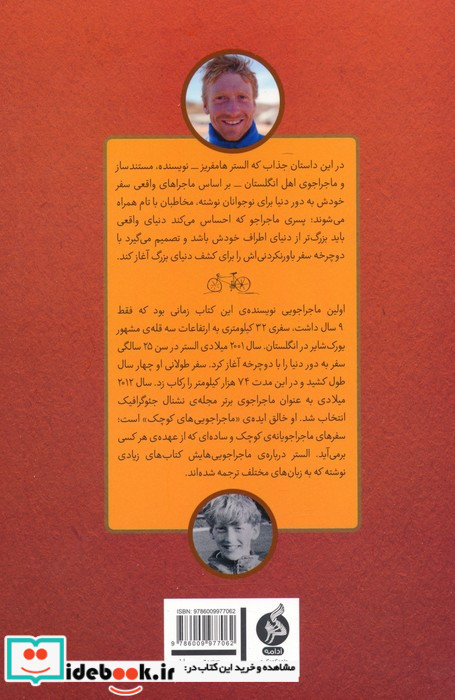 در این داستان جذاب که الستر هامفریز ــ نویسنده، مستندساز
و ماجراجوی اهل انگلستان ــ بر اساس ماجراهای واقعی سفر
خودش به دور دنیا برای نوجوانان نوشته، مخاطبان با تام همراه
می‌شوند؛ پسری ماجراجو که احساس می‌کند دنیای واقعی
باید بزرگ‌تر از دنیای اطراف خودش باشد و تصمیم می‌گیرد با
دوچرخه سفر باورنکردنی‌اش را برای کشف دنیای بزرگ آغاز کند.
اولین ماجراجویی نویسنده‌ی این کتاب زمانی بود که فقط
۹ سال داشت، سفری ۳۲ کیلومتری به ارتفاعات سه قله‌ی مشهور
یورک‌شایر در انگلستان. سال ۲۰۰۱ میلادی الستر در سن ۲۵ سالگی
سفر به دور دنیا را با دوچرخه آغاز کرد. سفر طولانی او چهار سال
طول کشید و در این مدت ۷۴ هزار کیلومتر را رکاب زد. سال ۲۰۱۲
میلادی به عنوان ماجراجوی برتر مجله‌ی نشنال جئوگرافیک
انتخاب شد. او خالق ایده‌ی «ماجراجویی‌های کوچک» است؛
سفرهای ماجراجویانه‌ی کوچک و ساده‌ای که از عهده‌ی هر کسی
برمی‌آید. الستر درباره‌ی ماجراجویی‌هایش کتاب‌های زیادی
نوشته که به زبان‌های مختلف ترجمه شده‌اند.
ISBN: 9786009977062
9 786009 977062
ادامه
مشاهده و خرید این کتاب در:
idebook.ir